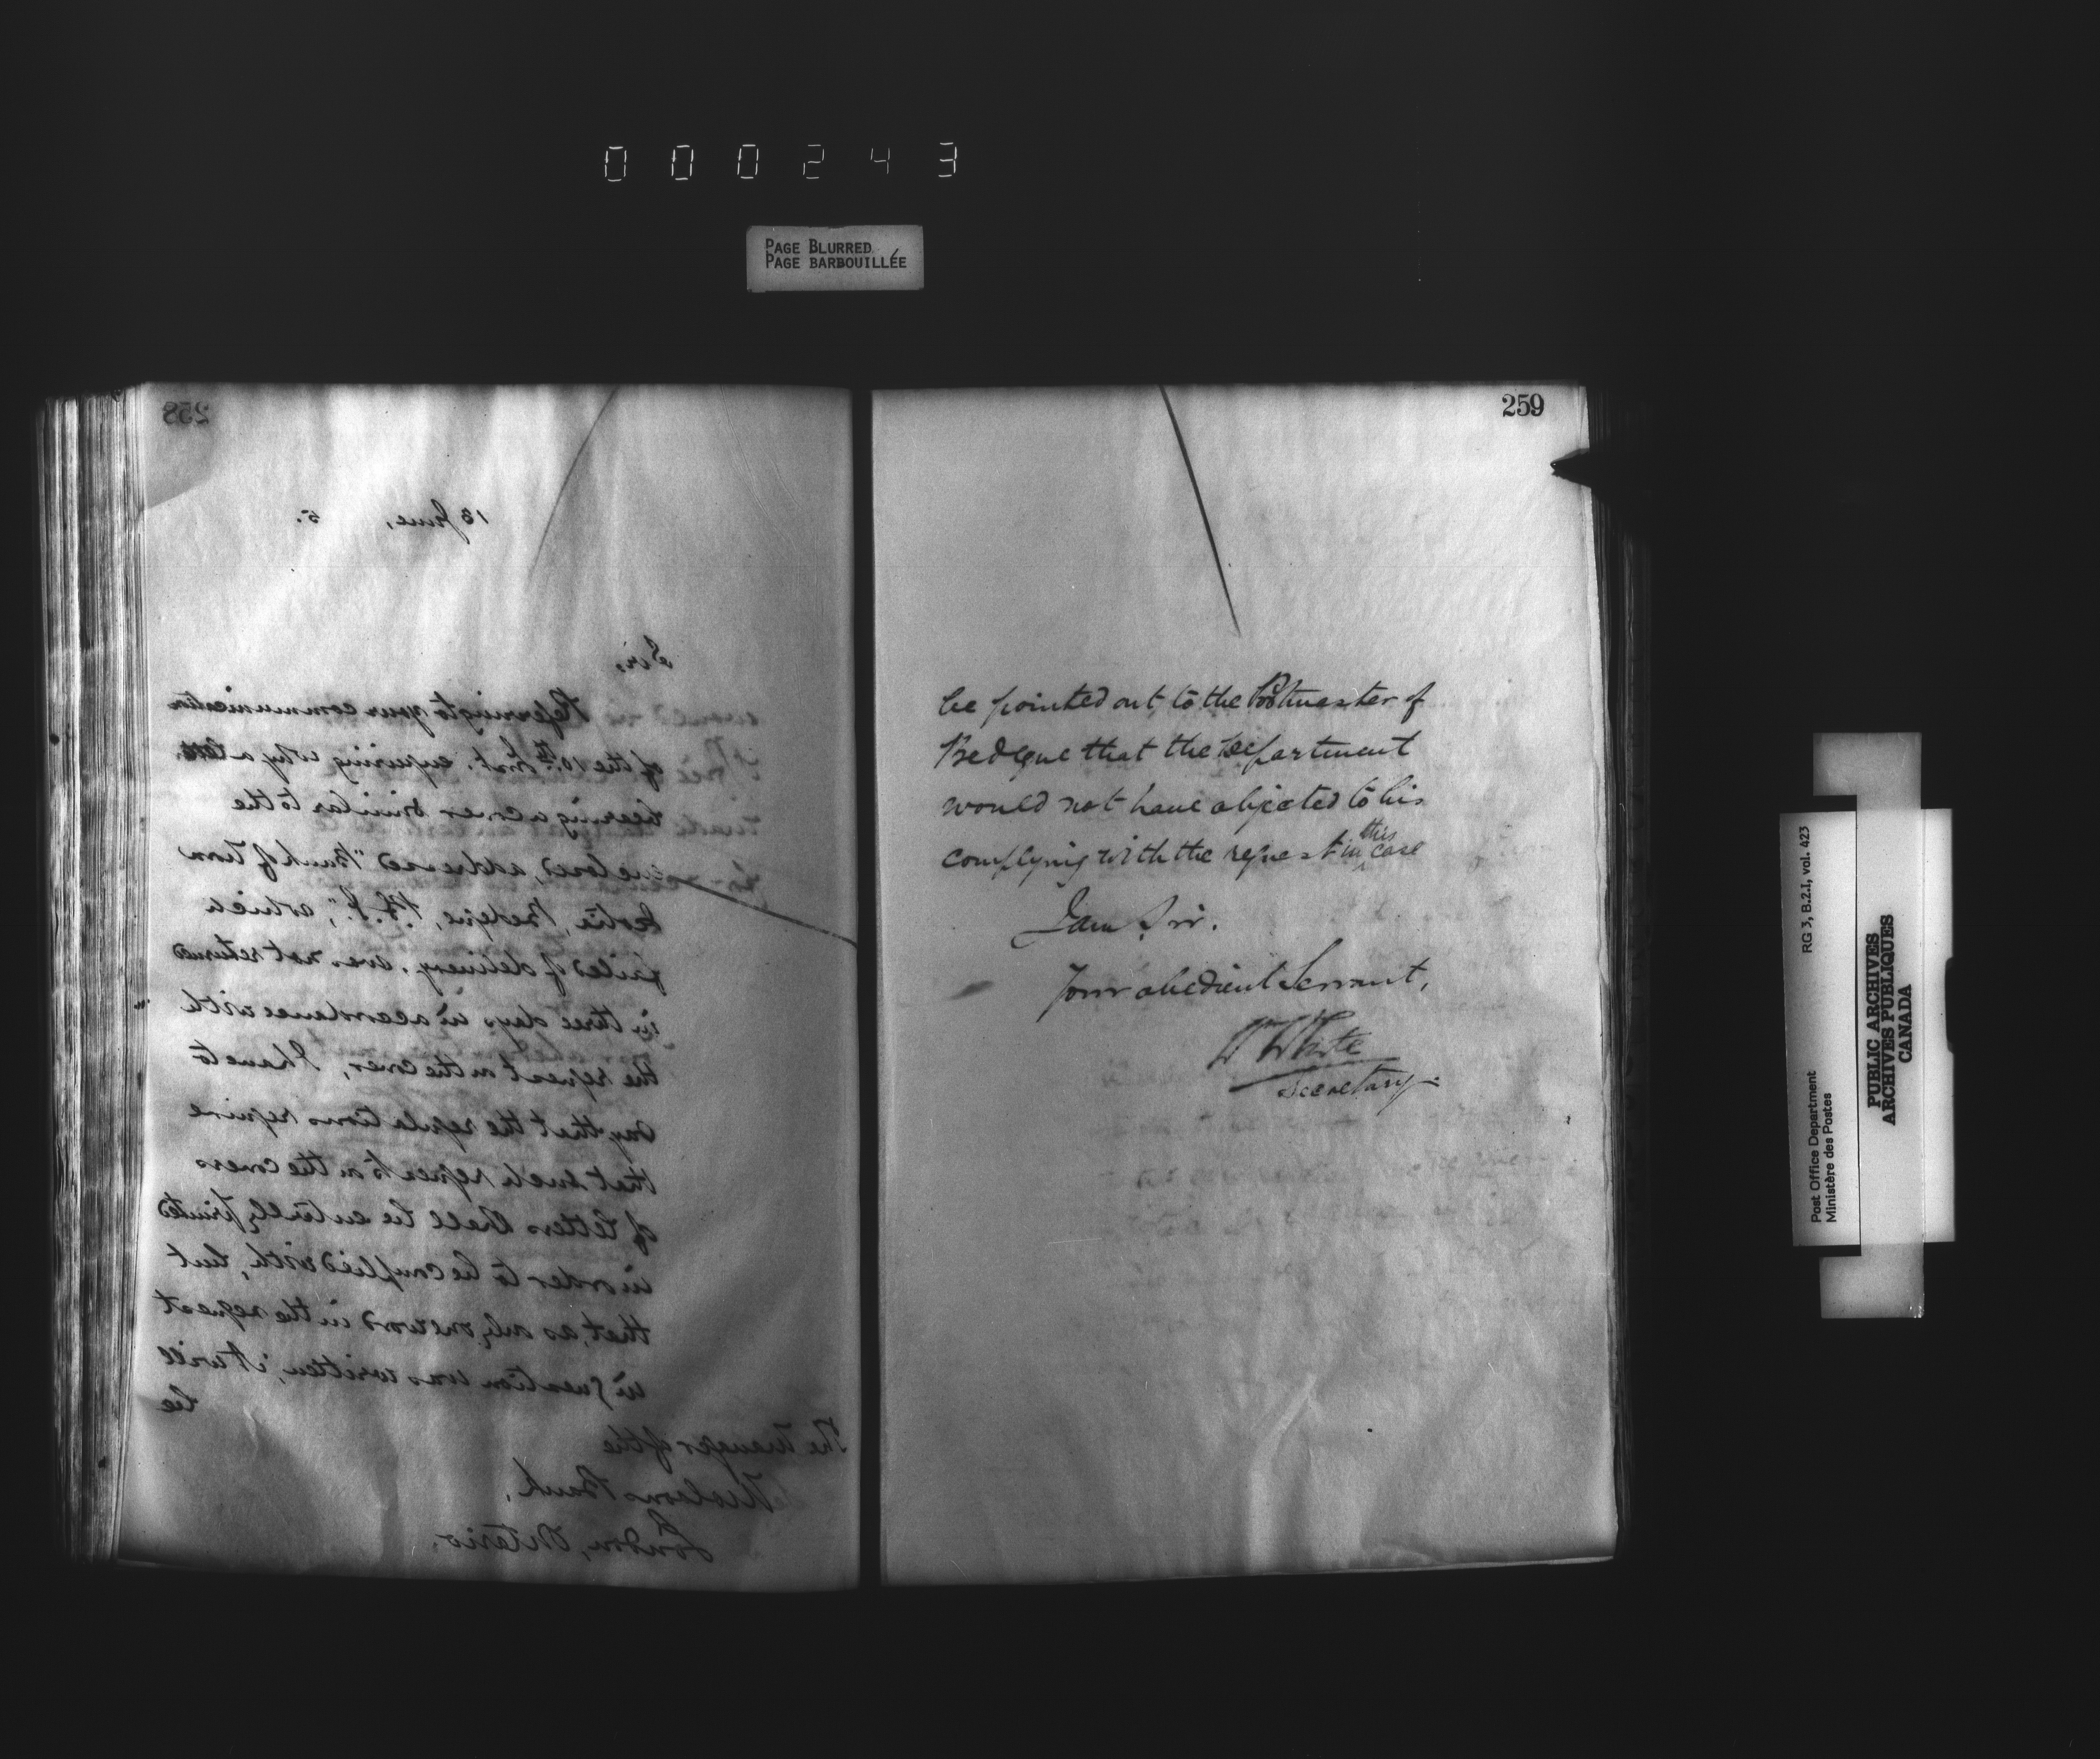 000243
PAGE BLURRED
PAGE BARBOUILLÉE
258
13 June, 5.
Sir,
Referring to your communication
of the 10th Inst. enquiring why a letter
bearing a cover similar to the
enclosed, addressed "Bank of Nova
Scotia, Bedeque, P.E.I.", which
failed of delivery, was not returned
in three days in accordance with
the request on the cover, I have to
say that the regulations require
that such requests on the covers
of letters shall be entirely printed
in order to be complied with, but
that, as only one word in the request
in question was written, it will
be
The Manager of the
Molsons Bank,
London, Ontario.
259
be pointed out to the Postmaster of
Bedeque that the Department
would not have objected to his
complying with the request in this case
I am, Sir.
Your obedient Servant,
W White
Secretary.
RG 3, B.2.I, vol. 423
Post Office Department
Ministère des Postes
PUBLIC ARCHIVES
ARCHIVES PUBLIQUES
CANADA